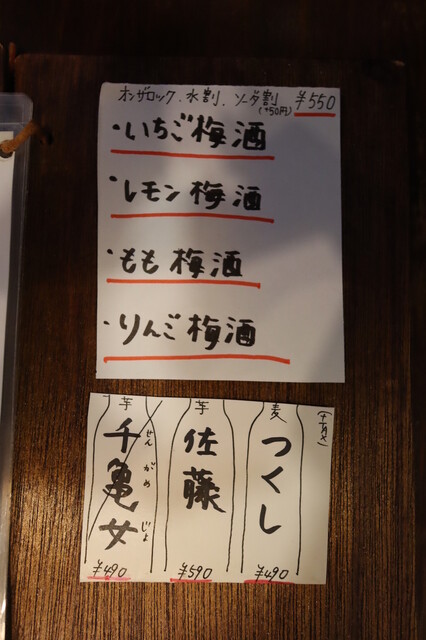 オンザロック、水割、ソーダ割 ¥550
(+50円)
・いちご梅酒
・レモン梅酒
・もも梅酒
・りんご梅酒
麦
つくし
¥490
芋
佐藤
¥590
芋
千亀女
せんがめじょ
¥490